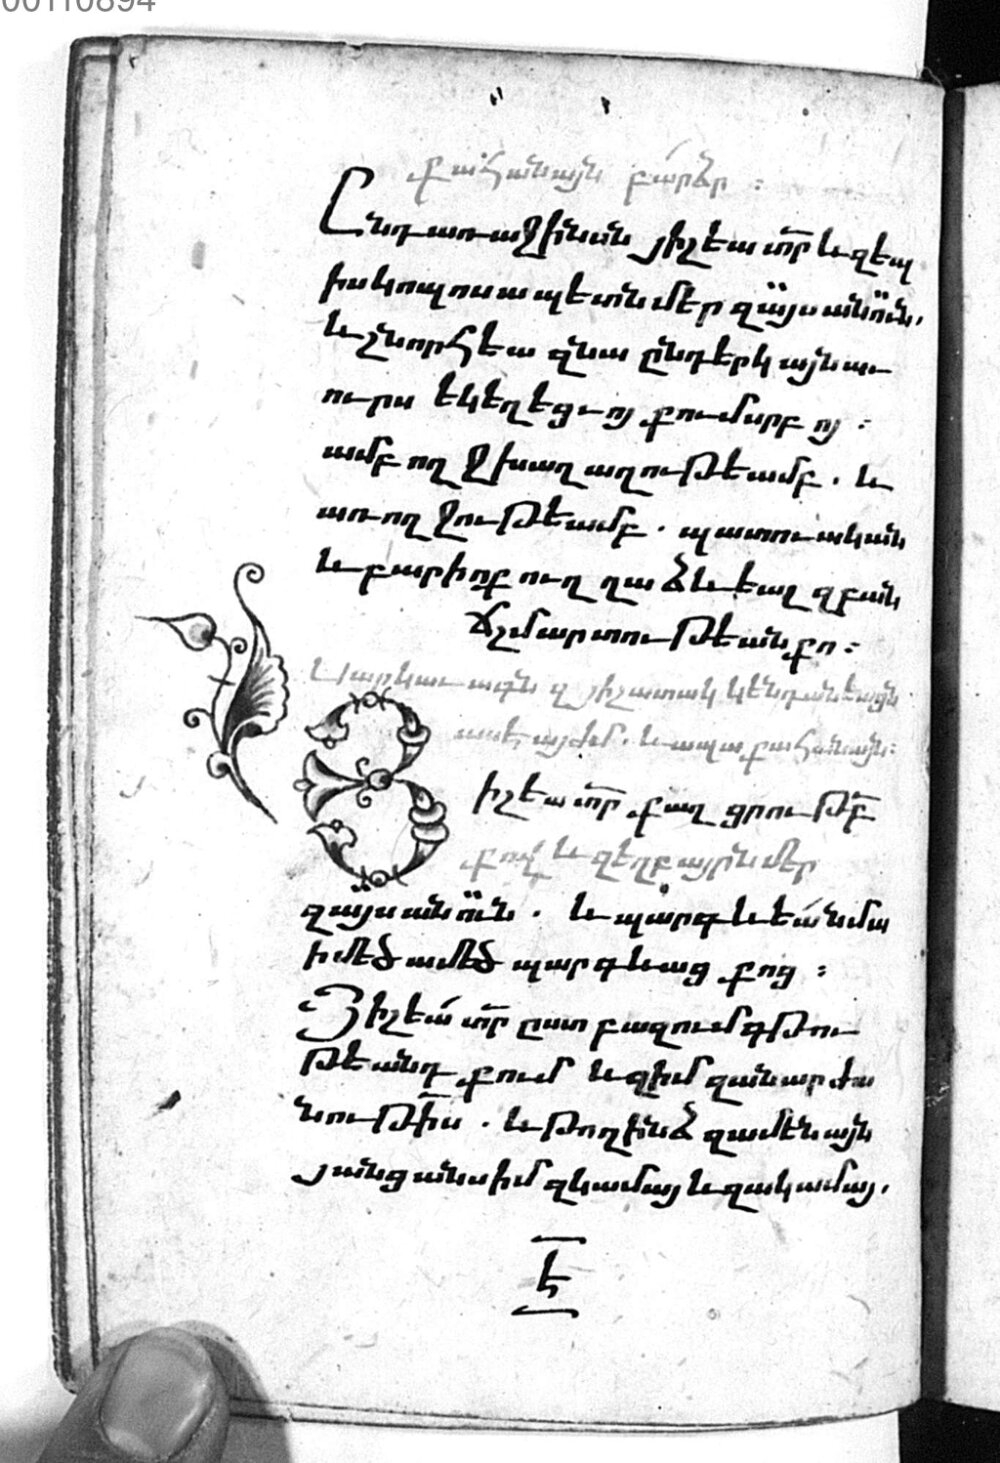 00110894
քահանայն բարձր ։
Ընդառաջինսն յիշեա տր և զեպ
իսկոպոսապետն մեր զայս անուն,
և շնորհեա զնա ընդերկ այնաւ
ուրս եկեղեցւոյ քում սրբոյ ։
ամբողջ խաղաղութեամբ . և
առողջութեամբ . պատուական
և բարիոք ուղղաձևեալ զբան
ճշմարտութեան քո ։
Սարկաւագն զյիշատակ կենդանեացն
ասէ այժմ . և ապա քահանայն ։
Յիշեա տր քաղցրութբ
քով և զեղբայրն մեր
զայս անուն . և պարգևեա նմա
ի մեծամեծ պարգևաց քոց ։
Յիշեա տր ըստ բազում գթու
թեանդ քում և զիմ զանարժա
նութիս . և թող ինձ զամենայն
յանցանս իմ զկամայ և զակամայ,
է